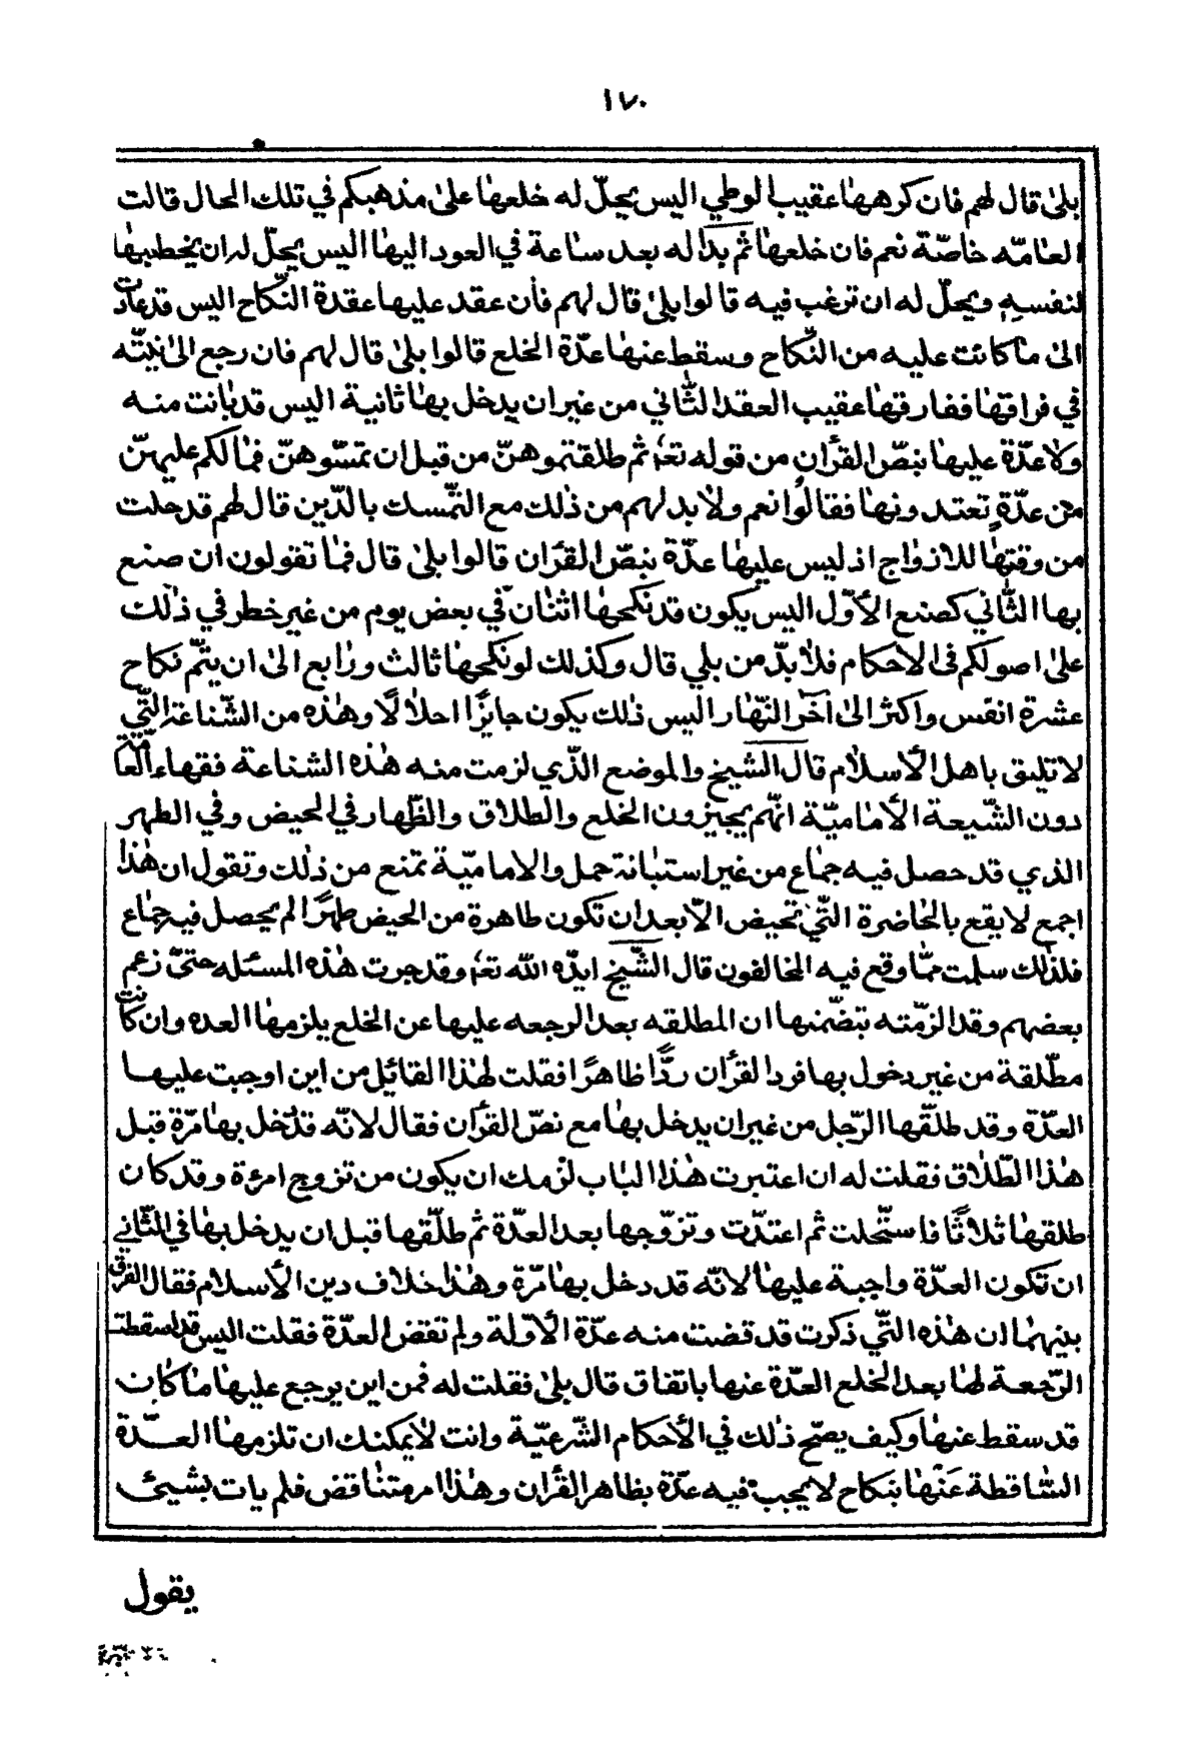 ١٧٠
بلىٰ قال لهم فان كرهها عقيب الوطي اليس يحلّ له خلعها علىٰ مذهبكم في تلك الحال قالت
العامّه خاصّة نعم فان خلعها ثم بدا له بعد ساعة في العود اليها اليس يحلّ له ان يخطبها
لنفسه ويحلّ له ان ترغب فيه قالوا بلىٰ قال لهم فأن عقد عليها عقدة النّكاح اليس قد عادت
الىٰ ما كانت عليه من النّكاح وسقط عنها عدّة الخلع قالوا بلىٰ قال لهم فان رجع الىٰ نيّته
في فراقها ففارقها عقيب العقد الثّاني من غير ان يدخل بها ثانية اليس قد بانت منه
ولا عدّة عليها بنصّ القرأن من قوله تعٰا ثم طلقتموهنّ من قبل ان تمسّوهنّ فما لكم عليهنّ
من عدّةٍ تعتدونها فقالوا نعم ولابد لهم من ذٰلك مع التّمسك بالدّين قال لهم قد حلت
من وقتها للازواج اذ ليس عليها عدّة بنصّ القرٔان قالوا بلىٰ قال فما تقولون ان صنع
بها الثّاني كصنع الأوّل اليس يكون قد نكحها اثنان في بعض يوم من غير خطر في ذٰلك
علىٰ اصولكم فى الاحكام فلابدّ من بلي قال وكذلك لو نكحها ثالث ورابع الىٰ ان يتمّ نكاح
عشرة انفس واكثر الىٰ اٰخر النّهار اليس ذلك يكون جايزًا احلالًا وهٰذه من الشّناعة الّتي
لا تليق باهل الأسلام قال الشيخ والموضع الّذي لزمت منه هٰذه الشناعة فقهاء العامّة
دون الشّيعة الأماميّة انّهم يجيزون الخلع والطلاق والظّهار في الحيض وفي الطهر
الذي قد حصل فيه جماع من غير استبانة حمل والاماميّة تمنع من ذلك وتقول ان هٰذا
اجمع لا يقع بالحاضرة الّتي تحيض الّا بعد ان تكون طاهرة من الحيض طهرًا لم يحصل فيه جماع
فلذٰلك سلمت ممّا وقع فيه المخالفون قال الشّيخ ايدّه الله تعٰا وقد جرت هٰذه المسئله حتىّ زعم
بعضهم وقد الزمّته بتضّمنها ان المطلقه بعد الرجعه عليها عن الخلع يلزمها العده وان كانت
مطّلقة من غير دخول بها فرد القرأن ردًّا ظاهرًا فقلت لهٰذا القائل من اين اوجبت عليها
العدّة وقد طلّقها الرّجل من غير ان يدخل بها مع نصّ القرأن فقال لانّه قد دخل بها مرّة قبل
هٰذا الطّلاق فقلت له ان اعتبرت هٰذا الباب لزمك ان يكون من تزوج امرءة وقد كان
طلقها ثلاثًا فاستحّلت ثم اعتدّت وتزوّجها بعد العدّة ثم طلّقها قبل ان يدخل بها في الثّاني
ان تكون العدّة واجبة عليها لانّه قد دخل بها مرّة وهٰذا خلاف دين الأسلام فقال الفرق
بينهما ان هٰذه الّتي ذكرت قد قضت منه عدّة الأوّلة ولم تقض العدّة فقلت اليس قد اسقطت
الرّجعة لها بعد الخلع العدّة عنها باتفاق قال بلىٰ فقلت له فمن اين يرجع عليها ما كان
قد سقط عنها وكيف يصحّ ذٰلك في الأحكام الشّرعيّة وانت لا يمكنك ان تلزمها العدّة
السّاقطة عَنْها بنكاح لا يجب فيه عدّة بظاهر القرأن وهٰذا امر متناقض فلم يات بشيئ
يقول